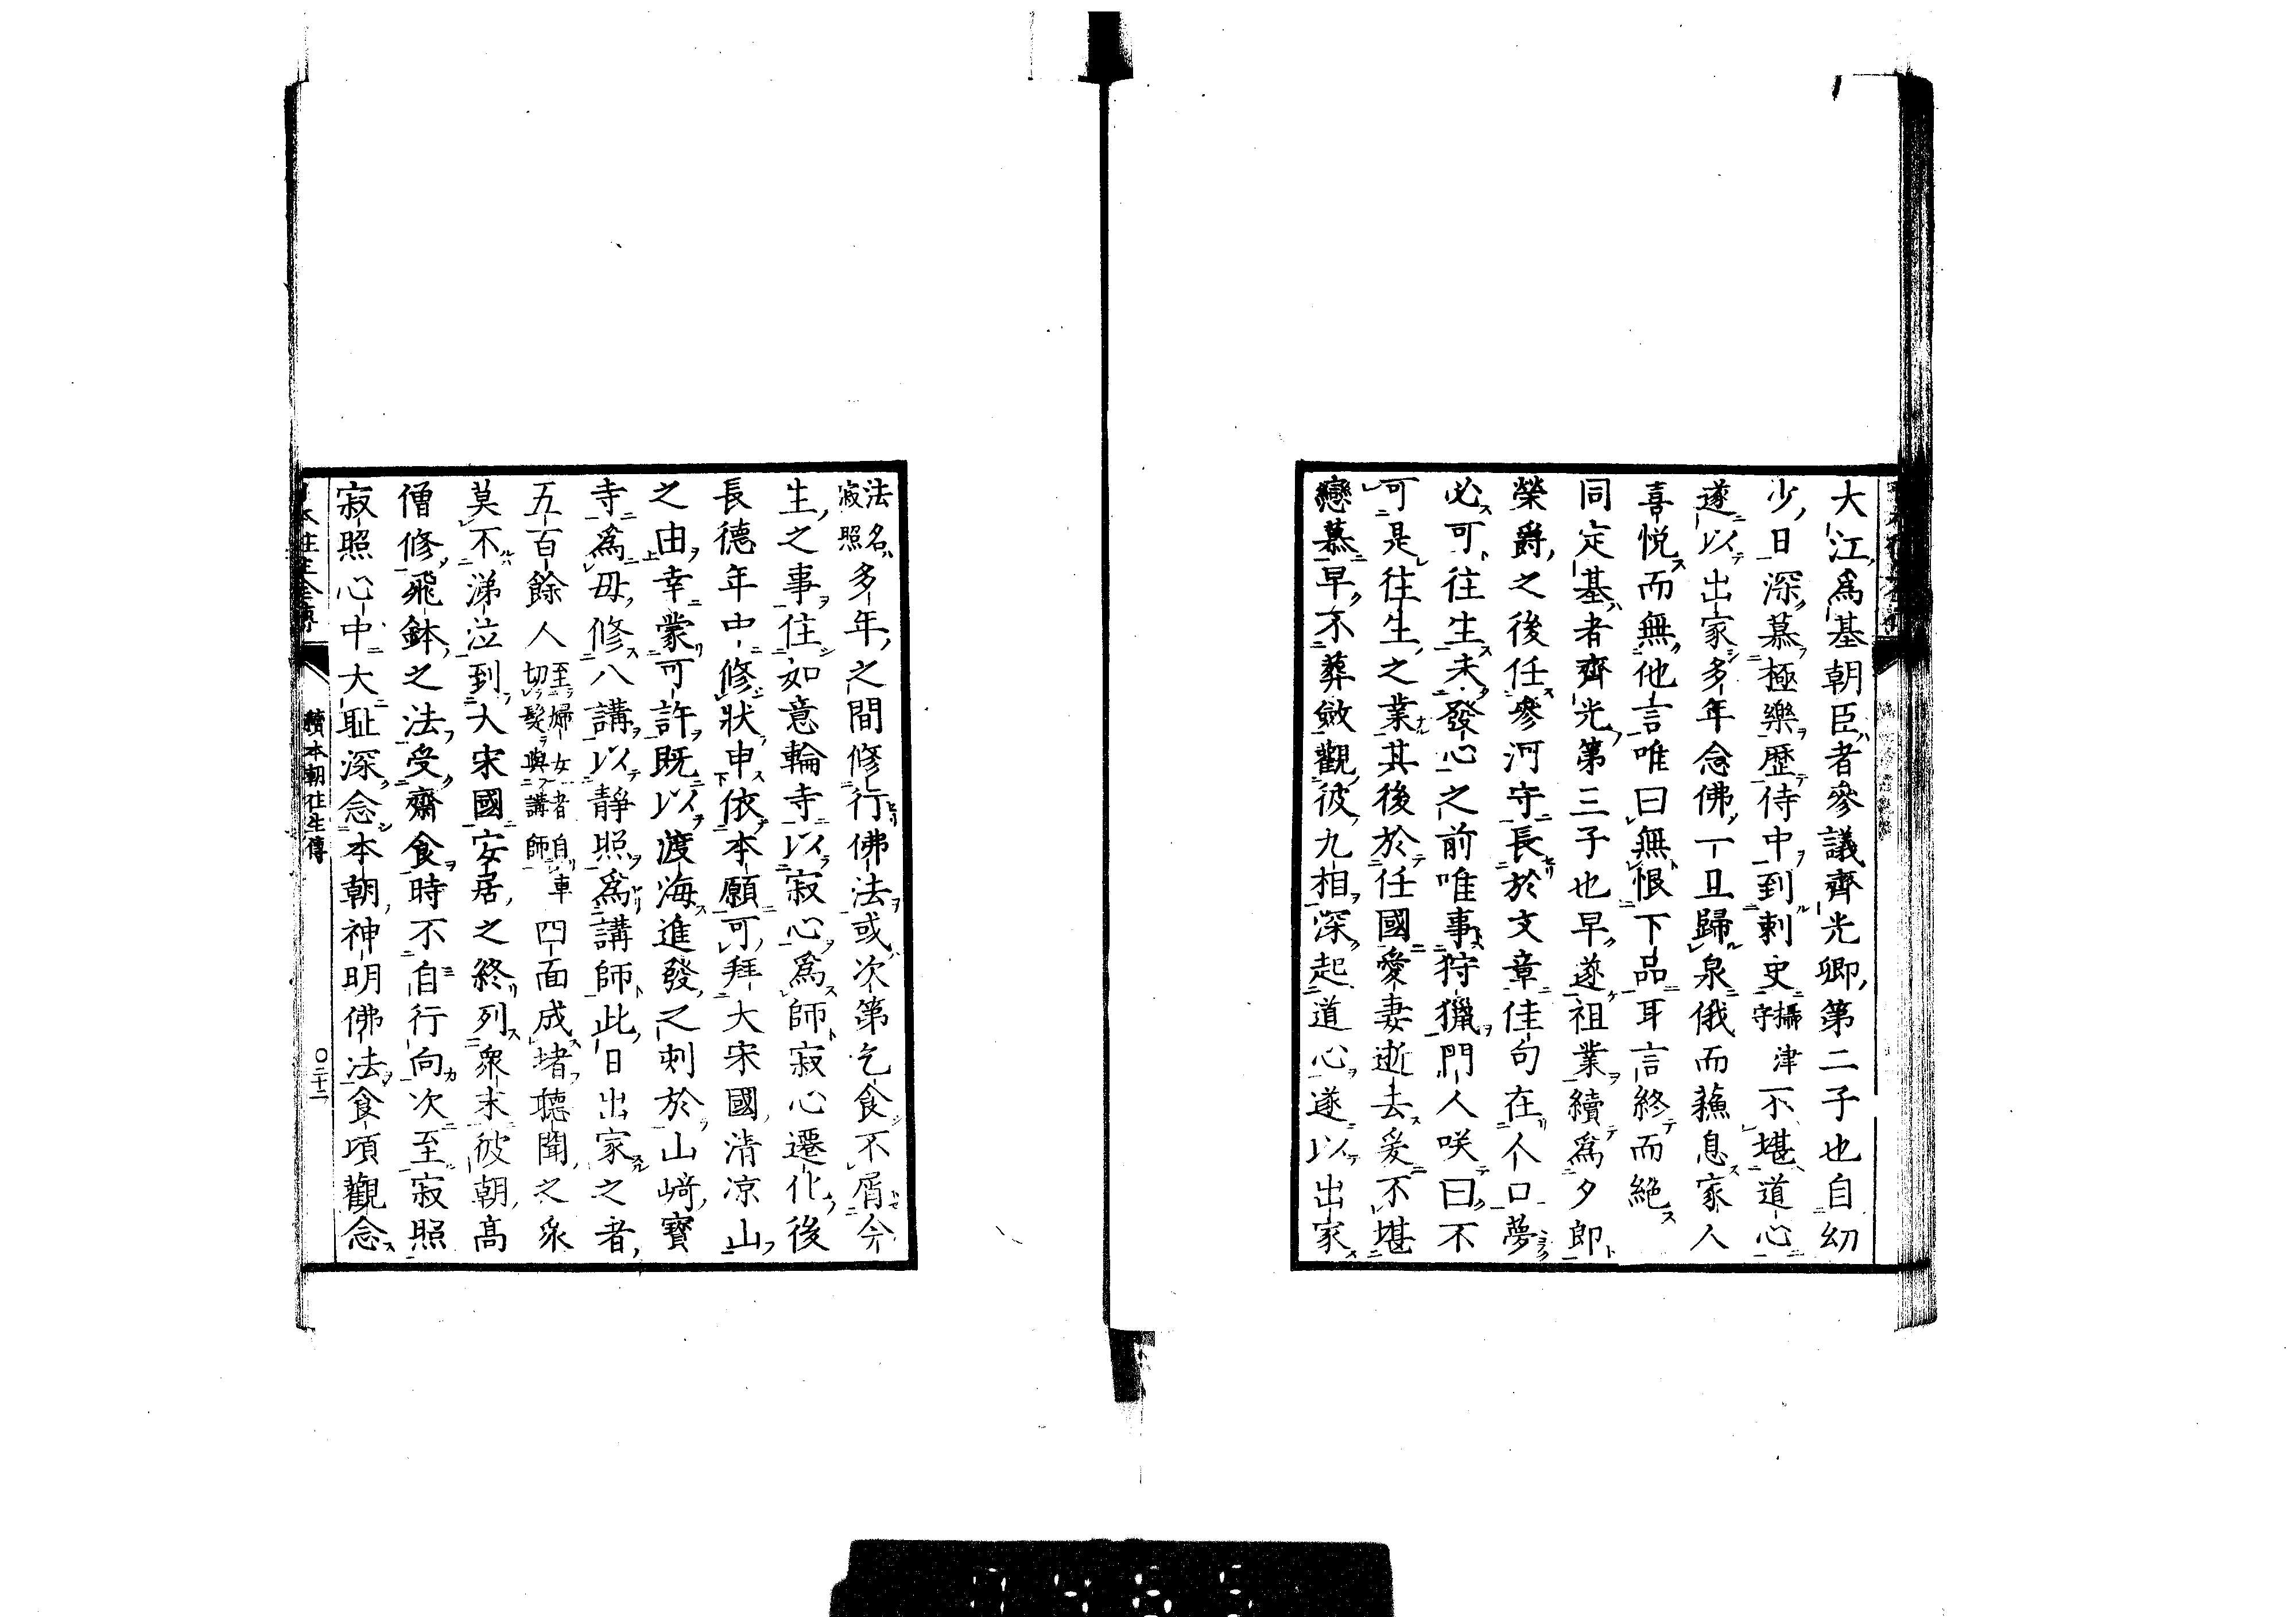 大江爲基朝臣者參議齊光卿第二子也自幼
少日深慕極樂歷侍中到刺史攝津守不堪道心
遂以出家多年念佛一旦歸泉俄而蘇息家人
喜悅而無他言唯曰無恨下品耳言終而絶
同定基者齊光第三子也早遂祖業續爲夕郎
榮爵之後任參河守長於文章佳句在人口夢
必可往生未發心之前唯事狩獵門人咲曰不
可是往生之業其後於任國愛妻逝去爰不堪
戀慕早不葬斂觀彼九相深起道心遂以出家
法名寂照多年之間修行佛法或次第乞食不屑今
生之事住如意輪寺以寂心爲師寂心遷化後
長德年中修狀申依本願可拜大宋國清凉山
之由幸蒙可許既以渡海進發之刻於山﨑寶
寺爲母修八講以靜照爲講師此日出家之者
五百餘人至婦女者自車切髮與講師四面成堵聽聞之衆
莫不涕泣到大宋國安居之終列衆末彼朝高
僧修飛鉢之法受齋食時不自行向次至寂照
寂照心中大耻深念本朝神明佛法食頃觀念
日本往生全傳
續本朝往生傳
〇二十二